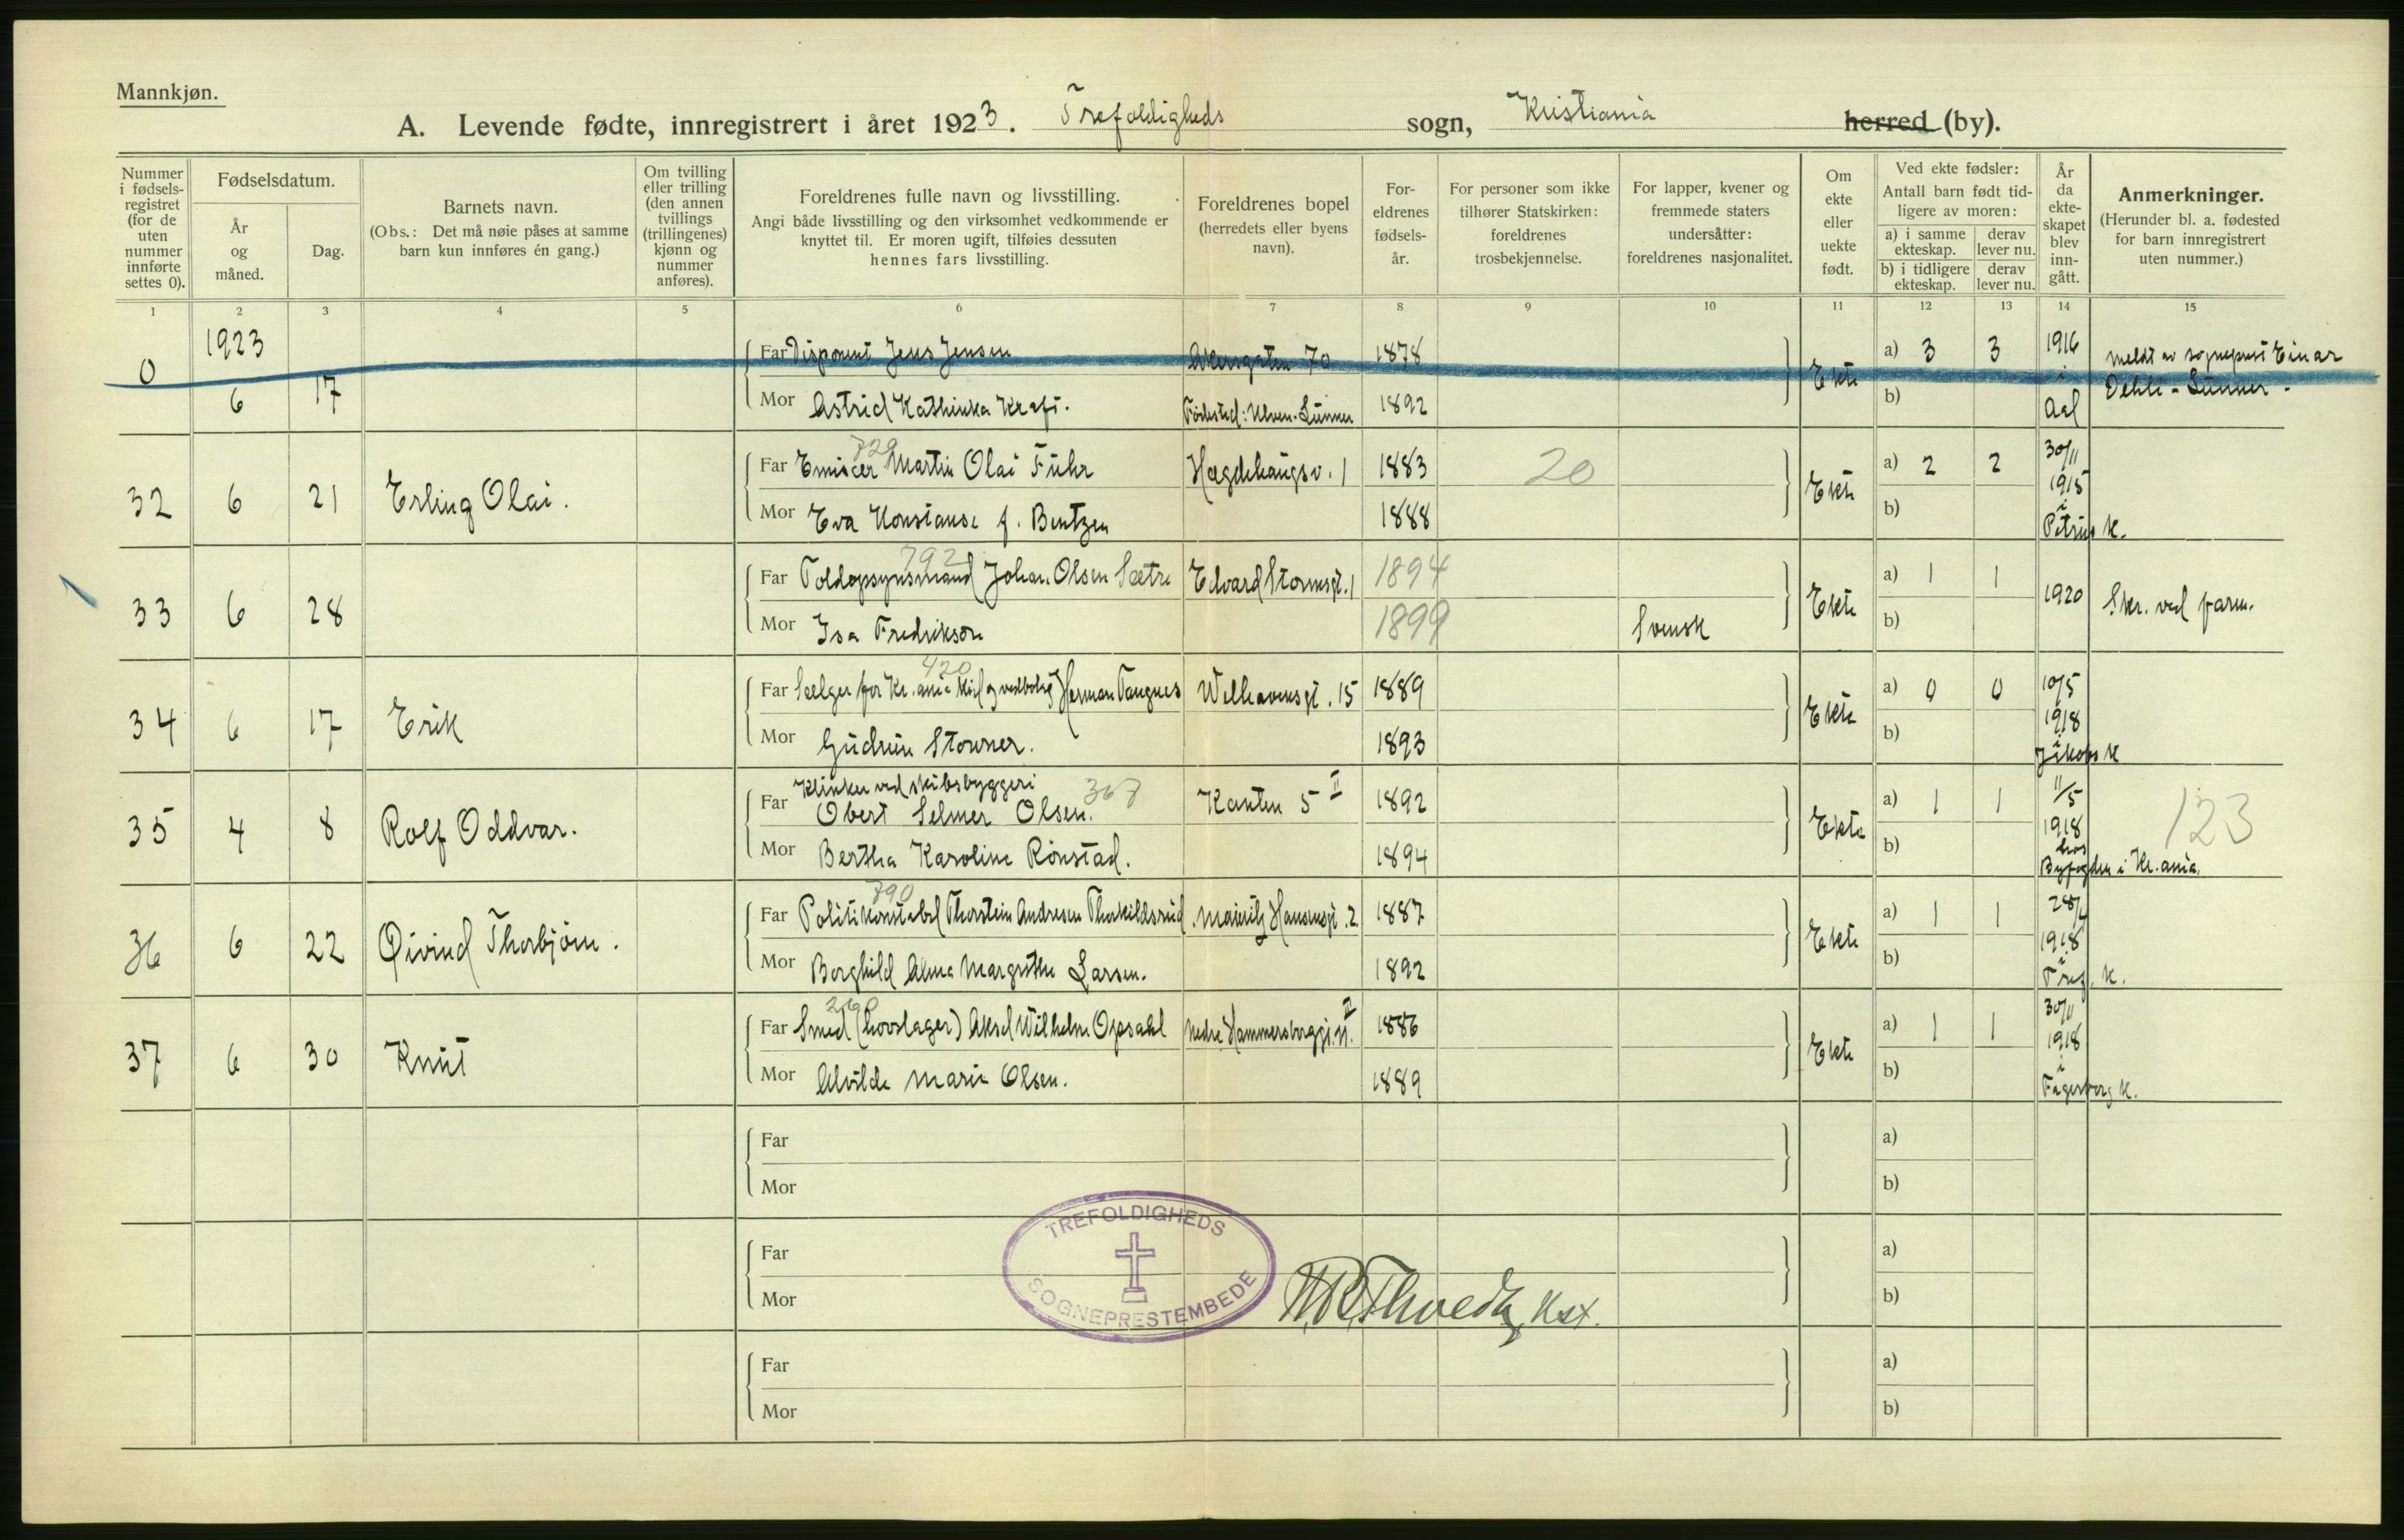 Mannkjøn.
A. Levende fødte, innregistrert i året 1923. Trefoldigheds sogn, Kristiania herred (by).
Nummer i fødsels-registret (for de uten nummer innførte settes 0).
Fødselsdatum.
År og måned.
Dag.
Barnets navn.
(Obs.: Det må nøie påses at samme barn kun innføres én gang.)
Om tvilling eller trilling (den annen tvillings (trillingenes) kjønn og nummer anføres).
Foreldrenes fulle navn og livsstilling.
Angi både livsstilling og den virksomhet vedkommende er knyttet til. Er moren ugift, tilføies dessuten hennes fars livsstilling.
Foreldrenes bopel (herredets eller byens navn).
For-eldrenes fødsels-år.
For personer som ikke tilhører Statskirken: foreldrenes trosbekjennelse.
For lapper, kvener og fremmede staters undersåtter: foreldrenes nasjonalitet.
Om ekte eller uekte født.
Ved ekte fødsler:
Antall barn født tid-ligere av moren:
a) i samme ekteskap.
derav lever nu.
b) i tidligere ekteskap.
derav lever nu.
År da ekte-skapet blev inn-gått.
Anmerkninger.
(Herunder bl. a. fødested for barn innregistrert uten nummer.)
1 2 3 4 5 6 7 8 9 10 11 12 13 14 15
1923
0 6 17
Far Disponent Jens Jensen Akersgaten 70 1878 Ekte a) 3 3 1916 i Aal meldt av sogneprest Einar
Mor Astrid Kathinka Kraft. Fødested: Ulven. Lunner 1892 b) Oehli - Lunner.
729
32 6 21 Erling Olai.
Far Emisær Martin Olai Führ Hægdehaugsv. 1 1883 20 Ekte a) 2 2 30/11 1915 i Petrus K.
Mor Eva Konstanse f. Bentzen 1888 b)
792
33 6 28
Far Toldopsynsmand Johan Olsen Sætre Edvard Stormsgt. 1 1894 Ekte a) 1 1 1920 Skr. ved farm.
Mor Isa Fredrikson 1899 Svensk b)
420
34 6 17 Erik
Far Sælger for Kr.ania Kul og vedbolag Herman Tangnes Welhavensgt. 15 1889 Ekte a) 0 0 10/5 1918 i Jakobs K
Mor Gudrun Størner. 1893 b)
35 4 8 Rolf Oddvar.
Klinker ved skibsbyggeri 367
Far Obert Selmer Olsen. Kanten 5 II 1892 Ekte a) 1 1 11/5 1918 hos Byfogden i Kr.ania. 123
Mor Bertha Karoline Rønstad. 1894 b)
790
36 6 22 Øivind Thorbjørn.
Far Politikonstabel Thorstein Andresen Thorkildsrud Mauritz Hansensgt. 2. 1887 Ekte a) 1 1 28/4 1918 i Tref. K.
Mor Borghild Alma Margrethe Larsen. 1892 b)
260
37 6 30 Knut
Far Smed (hovslager) Aksel Wilhelm Opsahl Nedre Hammersborggt. 11. II 1886 Ekte a) 1 1 30/11 1918 i Fagerborg K.
Mor Alvilde Marie Olsen. 1889 b)
Far a)
Mor b)
Far a)
Mor b)
TREFOLDIGHEDS
SOGNEPRESTEMBEDE
Kst.
Far a)
Mor b)